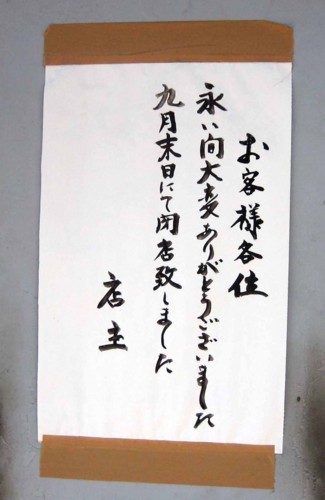 お客様各位
永い間大変ありがとうございました
九月末日にて閉店致しました
店主